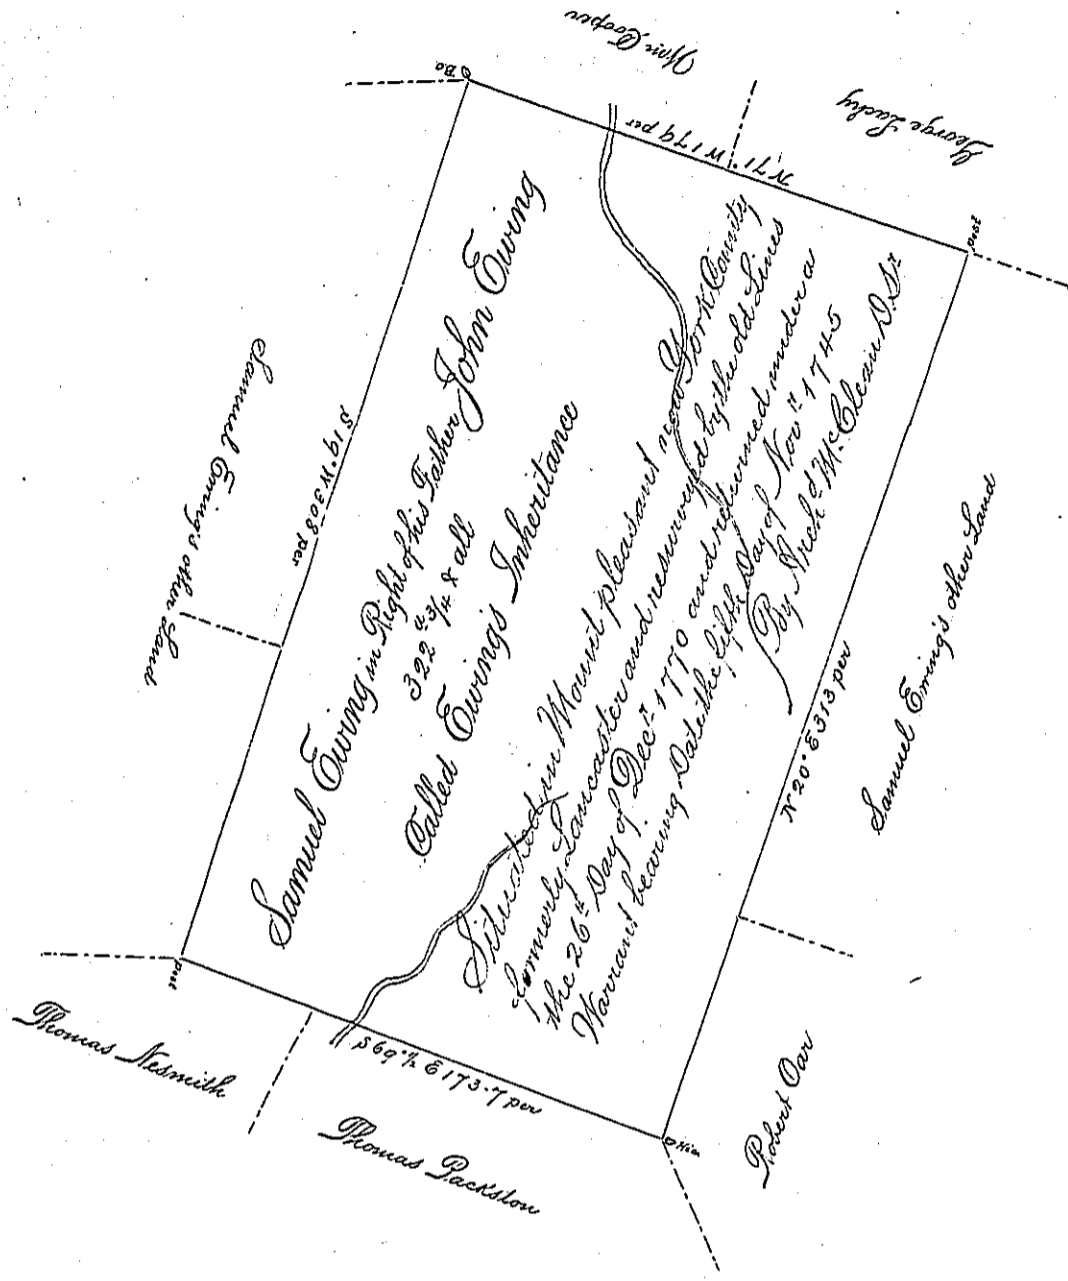 Wm Cooper
George Lachy
B.O
N 71° W 179 per
Post
Samuel Ewing's other Land
S 19° W 308 per
Samuel Ewing in Right of his Father John Ewing
322 a 3/4 & all
Called Ewing's Inheritance
Situated in Mount pleasant now York County
formerly Lancaster and resurveyed by the old Lines
the 26th Day of Decr 1770 and returned under a
Warrant bearing Date the fifth Day of Novr 1745
By Archd McClean D.Sr
N 20° E 313 per
Samuel Ewing's other Land
Post
S 69° 1/2 E 173.7 per
Thomas Nesmith
Thomas Packston
Robert Oar